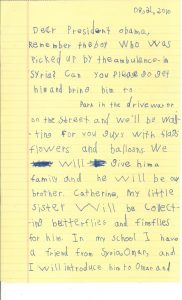 Dear President Obama,
Remember the boy who was
picked up by the ambulance in
Syria? Can you please go get
him and bring him to
Park in the driveway or
on the street and we'll be wait-
ing for you guys with flags
flowers and balloons. We
will give him a
family and he will be our
brother. Catherine, my little
sister will be collect-
ing butterflies and fireflies
for him. In my school I have
a friend from Syria, Omar, and
I will introduce him to Omar and